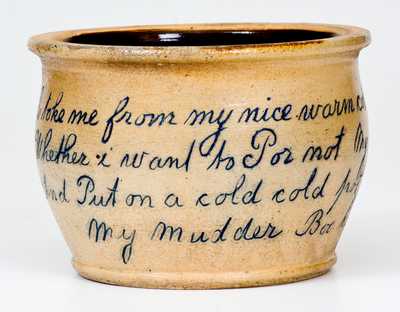 toke me from my nice warm
Whether i want to P or not My
and Put on a cold cold
My mudder